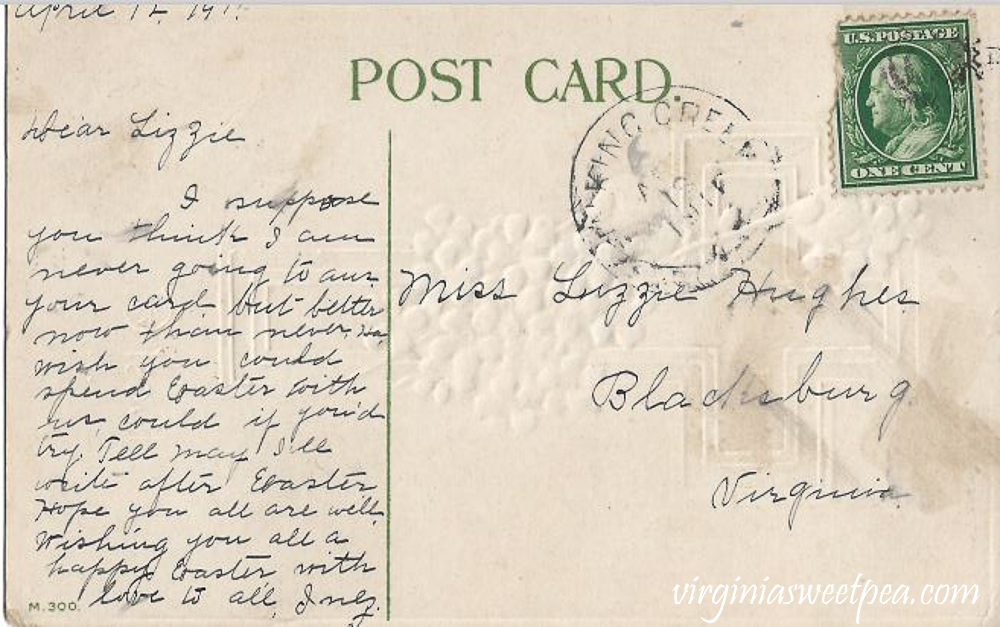 April 12, 191
POST CARD.
U.S. POSTAGE
ONE CENT
KING CREEK
Dear Lizzie
I suppose
you think I am
never going to ans
your card but better
now than never, Ha,
wish you could
spend Easter with
us, could if you'd
try. Tell May I'll
write after Easter
Hope you all are well.
Wishing you all a
happy Easter with
love to all, Inez.
Miss Lizzie Hughes
Blacksburg
Virginia
M.300.
virginiasweetpea.com